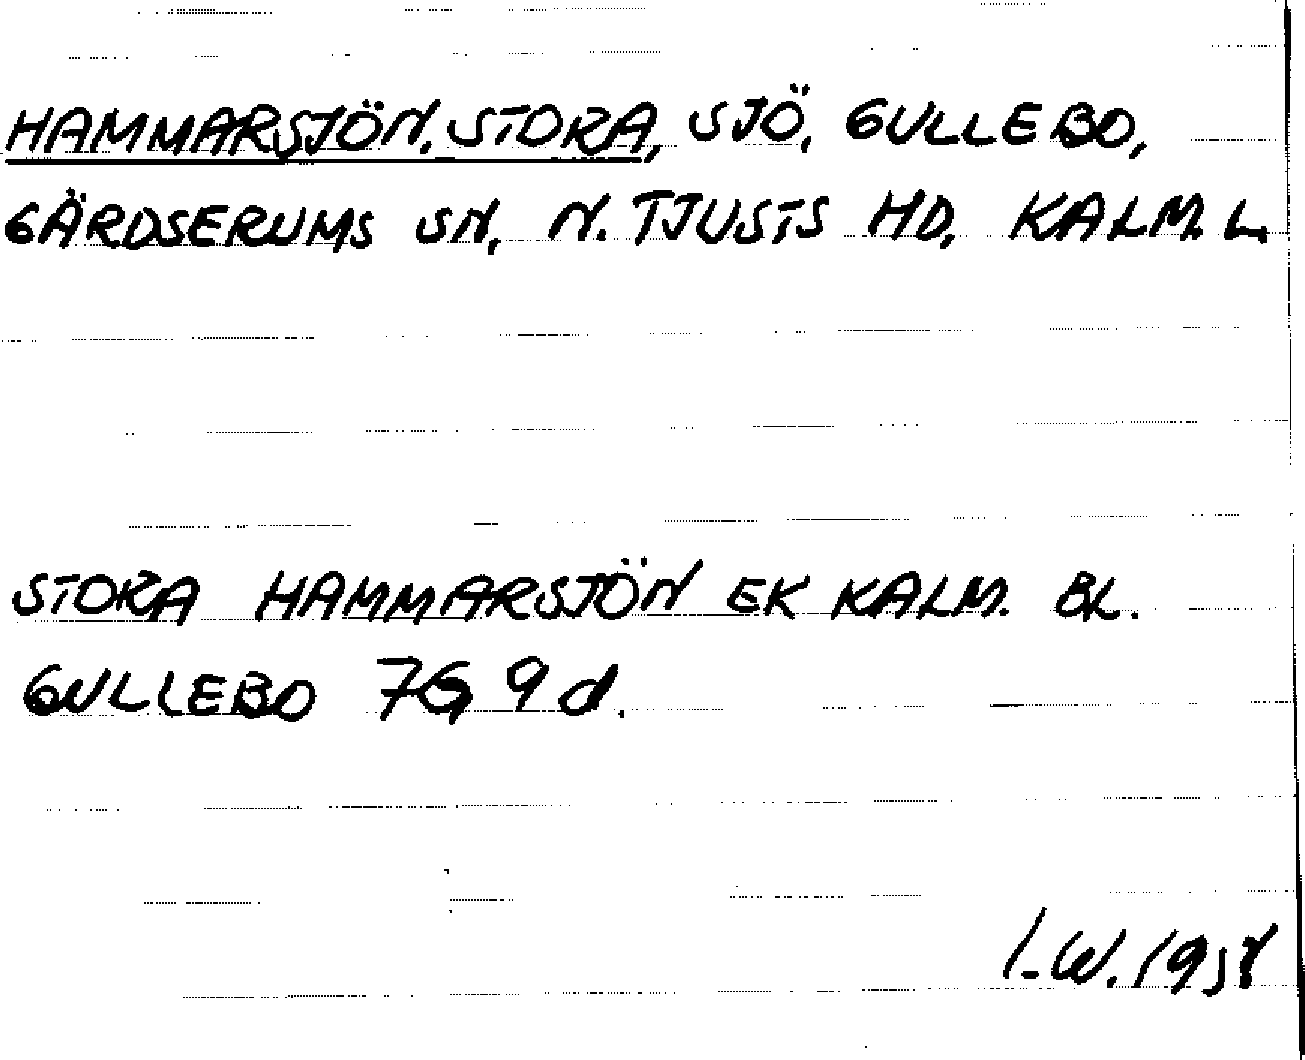 HAMMARSJÖN, STORA, SJÖ, GULLEBO,
GÄRDSERUMS SN, N. TJUSTS HD, KALM. L.
STORA HAMMARSJÖN EK KALM. BL.
GULLEBO 7G 9d.
I.W.